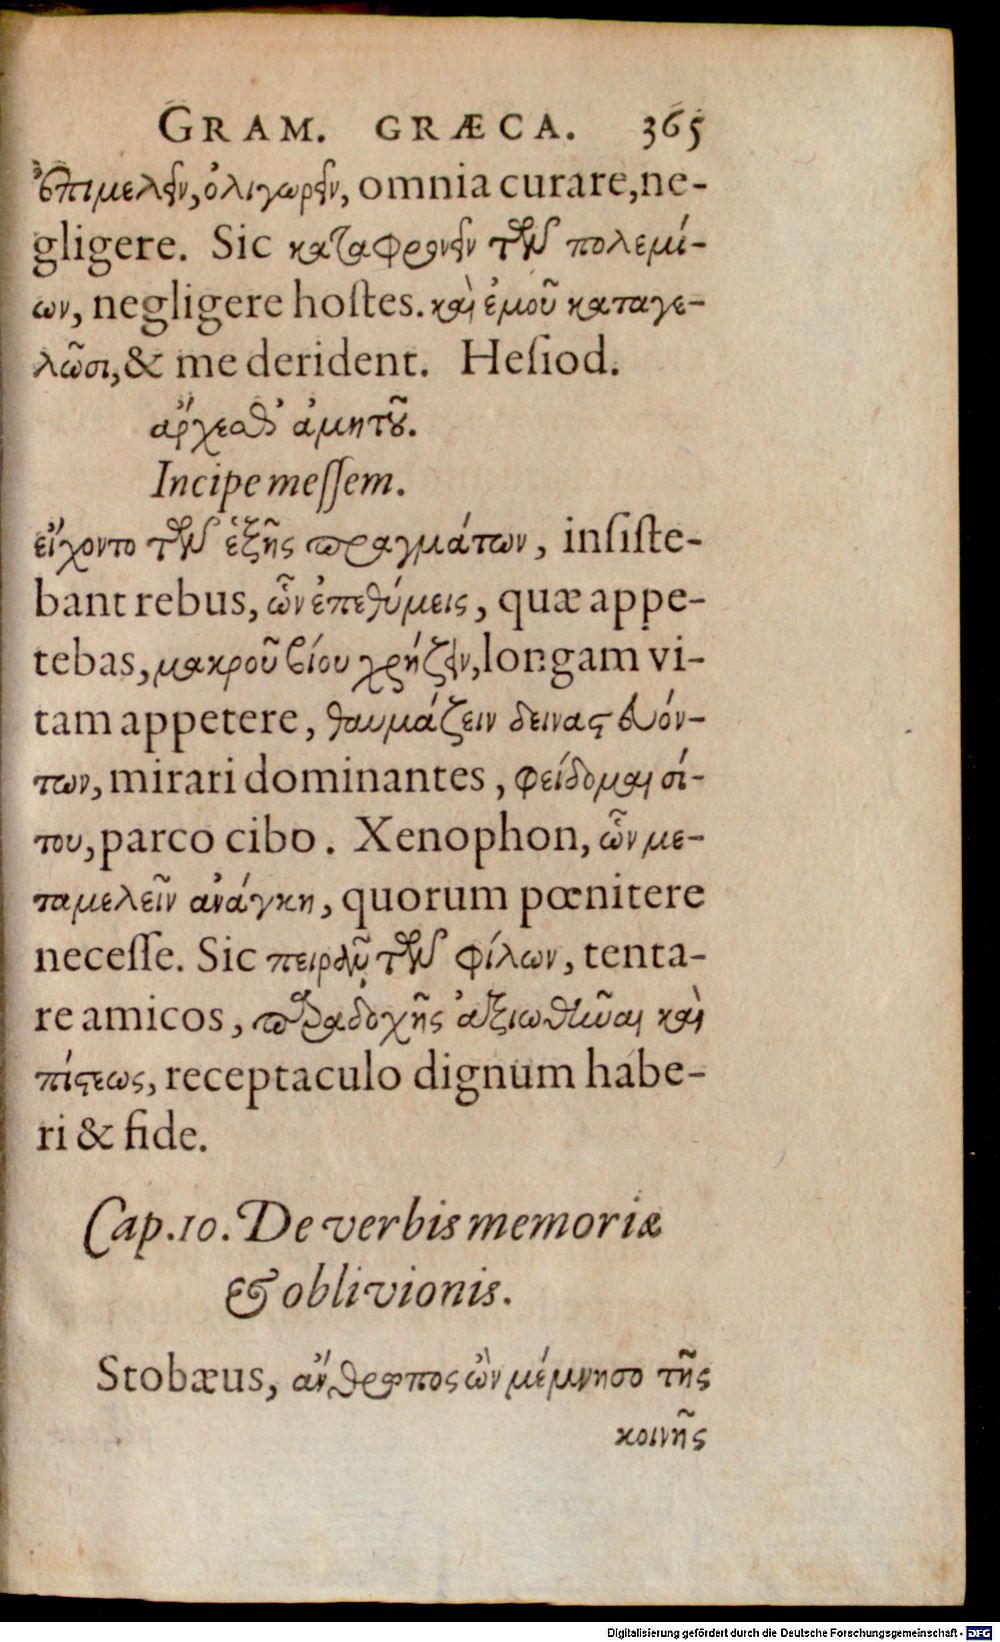 GRAM. GRÆCA. 365
ἐπιμελεῖν, ὀλιγωρεῖν, omnia curare, ne-
gligere. Sic καταφρονεῖν τῶν πολεμί-
ων, negligere hoſtes. καὶ ἐμοῦ καταγε-
λῶσι, & me derident. Heſiod.
ἄρχεσθ' ἀμητοῦ.
Incipe meſſem.
εἴχοντο τῶν ἑξῆς πραγμάτων, inſiſte-
bant rebus, ὧν ἐπεθύμεις, quæ appe-
tebas, μακροῦ βίου χρῄζειν, longam vi-
tam appetere, θαυμάζειν δυναστευόν-
των, mirari dominantes, φείδομαι σί-
του, parco cibo. Xenophon, ὧν με-
ταμελεῖν ἀνάγκη, quorum pœnitere
neceſſe. Sic πειρᾶν τῶν φίλων, tenta-
re amicos, παραδοχῆς ἀξιωθῆναι καὶ
πίστεως, receptaculo dignum habe-
ri & fide.
Cap. 10. De verbis memoriæ
& oblivionis.
Stobæus, ἄνθρωπος ὢν μέμνησο τῆς
κοινῆς
Digitalisierung gefördert durch die Deutsche Forschungsgemeinschaft - DFG